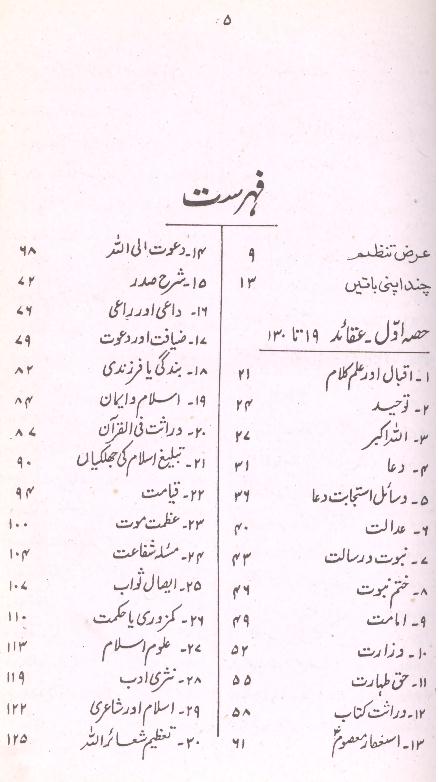 ۵
فہرست
عرض تنظیم ۹
چند اپنی باتیں ۱۳
حصہ اوّل ۔ عقائد ۱۹ تا ۱۳۰
۱۔ اقبال اور علم کلام ۲۱
۲۔ توحید ۲۴
۳۔ اللہ اکبر ۲۷
۴۔ دعا ۳۱
۵۔ وسائل استجابت دعا ۳۶
۶۔ عدالت ۴۰
۷۔ نبوت و رسالت ۴۳
۸۔ ختم نبوت ۴۶
۹۔ امامت ۴۹
۱۰۔ وزارت ۵۲
۱۱۔ حق طہارت ۵۵
۱۲۔ وراثت کتاب ۵۸
۱۳۔ استغفار معصومؑ ۶۱
۱۴۔ دعوت الی اللہ ۶۸
۱۵۔ شرح صدر ۷۲
۱۶۔ داعی اور راعی ۷۶
۱۷۔ ضیافت اور دعوت ۷۹
۱۸۔ بندگی یا فرزندی ۸۲
۱۹۔ اسلام و ایمان ۸۴
۲۰۔ وراثت فی القرآن ۸۷
۲۱۔ تبلیغ اسلام کی جھلکیاں ۹۰
۲۲۔ قیامت ۹۴
۲۳۔ عظمت موت ۱۰۰
۲۴۔ مسئلہ شفاعت ۱۰۴
۲۵۔ ایصال ثواب ۱۰۷
۲۶۔ کمزوری یا حکمت ۱۱۰
۲۷۔ علوم اسلام ۱۱۳
۲۸۔ نثری ادب ۱۱۹
۲۹۔ اسلام اور شاعری ۱۲۲
۳۰۔ تعظیم شعائر اللہ ۱۲۵